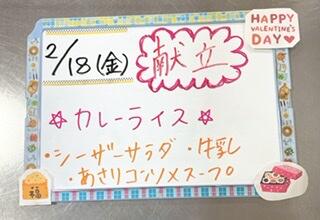 HAPPY
VALENTINE'S
DAY♥
2/18(金) 献立
☆カレーライス☆
・シーザーサラダ ・牛乳
・あさりコンソメスープ